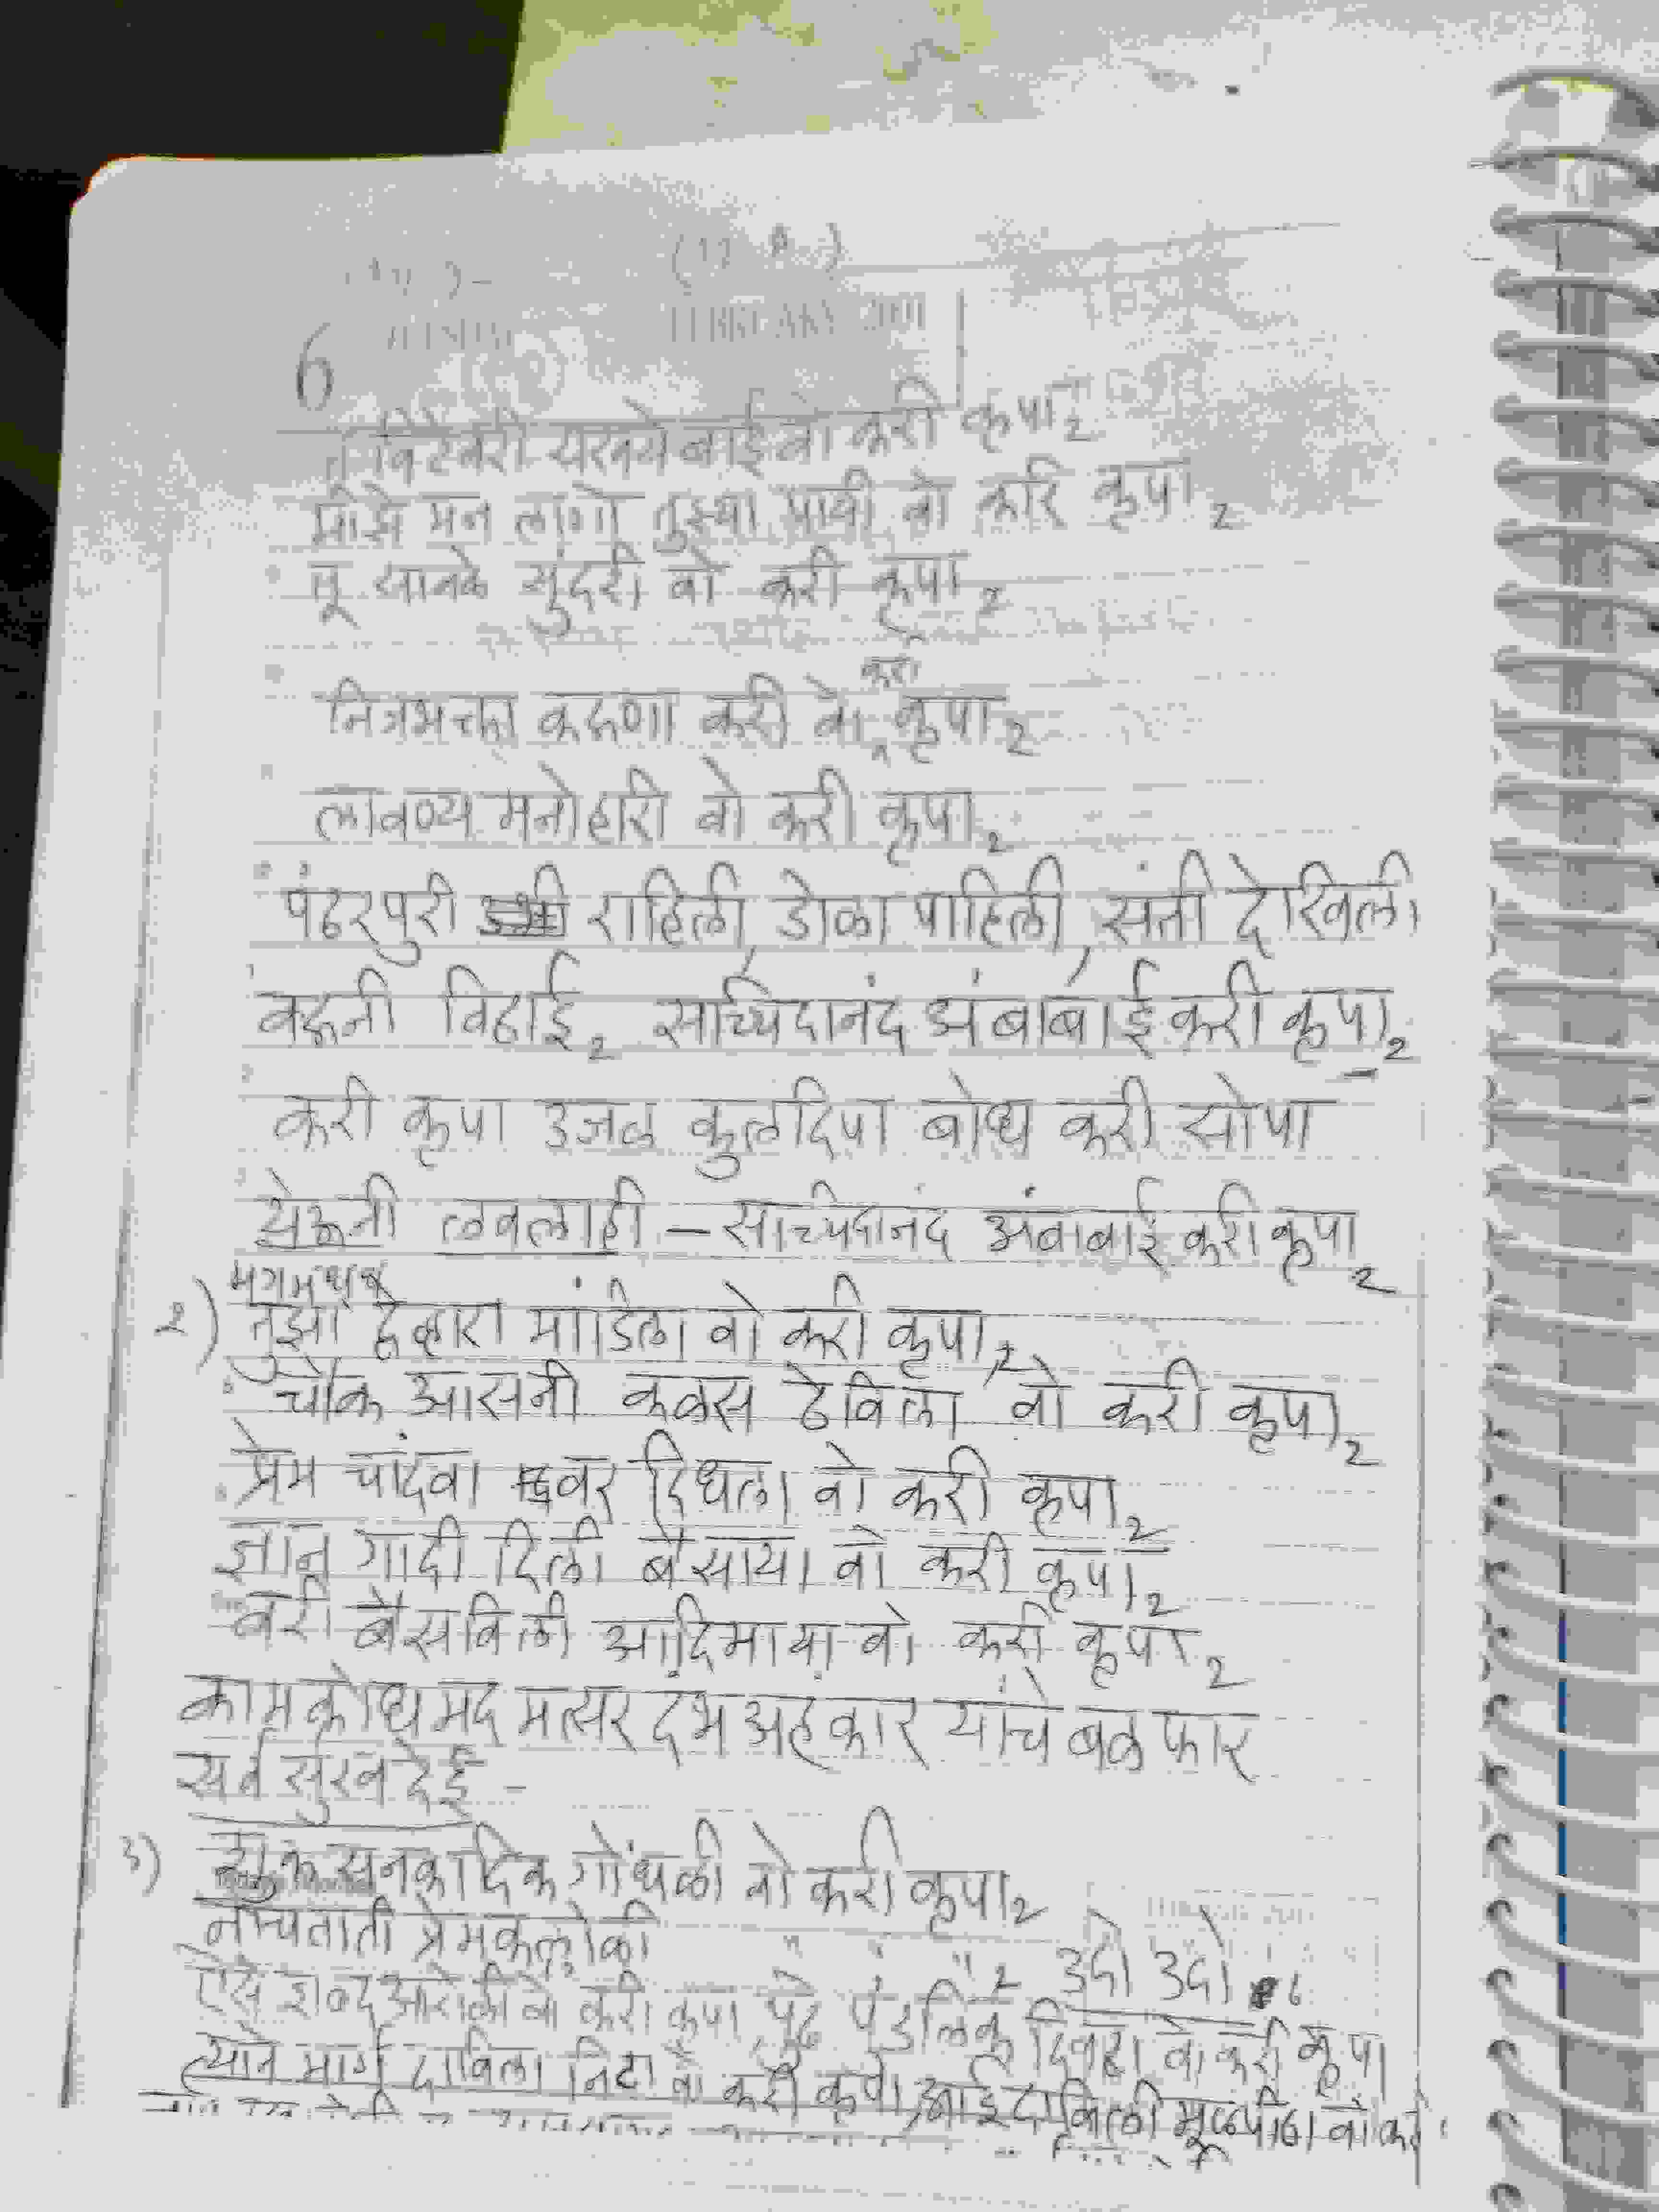 6
विटेवरी येरवये बाई वो करी कृपा 2
माझे मन लागो तुझ्या पायी वो करि कृपा 2
तू सानके सुंदरी वो करी कृपा 2
करी
निजभक्ता करुणा करी वो कृपा 2
लावण्य मनोहारी वो करी कृपा 2
पंढरपुरी राहिली, डोळा पाहिली, संती देखिली
वरुनी विठाई 2 सच्चिदानंद अंबाबाई करी कृपा 2
करी कृपा उजळ कुलदिपा बोध करी सोपा
येऊनी लवलाही – सच्चिदानंद अंबाबाई करी कृपा 2
२) तुझा देव्हारा मांडिला वो करी कृपा 2
चौक आसनी कळस ठेविला वो करी कृपा 2
प्रेम चांदवा वर दिधला वो करी कृपा 2
ज्ञान गादी दिली बैसाया वो करी कृपा 2
वरी बैसविली आदिमाया वो करी कृपा 2
काम क्रोध मद मत्सर दंभ अहंकार यांचे बळ फार
सर्व सुख देई -
3) शुक सनकादिक गोंधळी वो करी कृपा 2
नाचताती प्रेमकल्लोळी
" 2 उदो उदो 6
ऐसे शब्द आरोळी वो करी कृपा, पुढे पुंडलिक दिवटा वो करी कृपा
त्याने मार्ग दाविला निटा वो करी कृपा, आई दाविली मूळपीठा वो करी